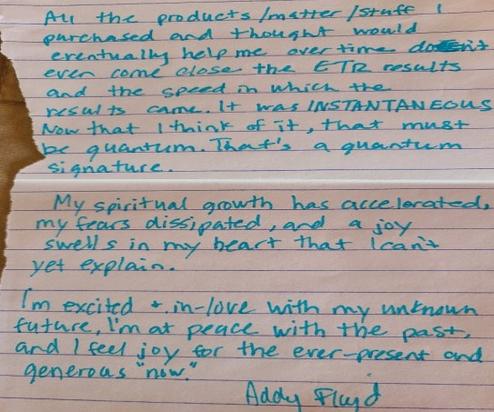 All the products/matter/stuff I
purchased and thought would
eventually help me over time doesn't
even come close the ETR results
and the speed in which the
results came. It was INSTANTANEOUS
Now that I think of it, that must
be quantum. That's a quantum
signature.
My spiritual growth has accelerated,
my fears dissipated, and a joy
swells in my heart that I can't
yet explain.
I'm excited + in-love with my unknown
future, I'm at peace with the past,
and I feel joy for the ever-present and
generous "now."
Addy Floyd